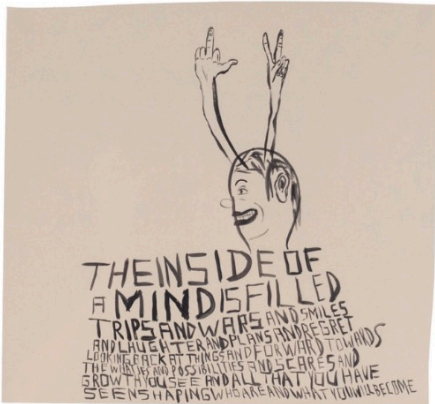 THE INSIDE OF
A MIND IS FILLED
TRIPS AND WARS AND SMILES
AND LAUGHTER AND PLANS AND REGRET
LOOKING BACK AT THINGS AND FORWARD TOWARDS
THE WHAT IFS AND POSSIBILITIES AND SCARES AND
GROWTH YOU SEE AND ALL THAT YOU HAVE
SEEN SHAPING WHO ARE AND WHAT YOU WILL BECOME